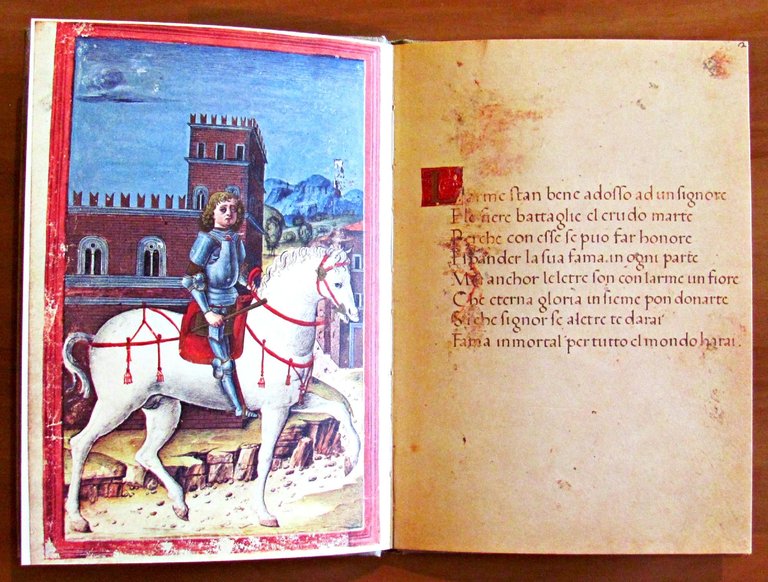 2
Larme stan bene adosso ad un signore
E le fiere battaglie el crudo marte
Perche con esse se puo far honore
Espander la sua fama.in ogni parte
Ma anchor le letre son con larme un fiore
Che eterna gloria insieme pon donarte
Si che signor se a letre te darai
Fama inmortal per tutto el mondo harai.